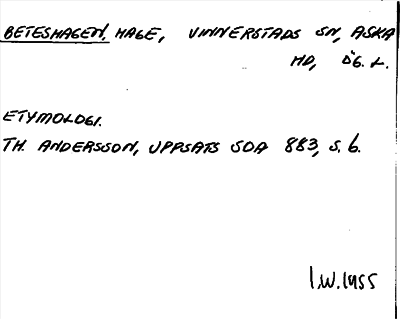 BETESHAGEN, HAGE, VINNERSTADS SN, ASKA
HD, ÖG. L.
ETYMOLOGI.
TH. ANDERSSON, UPPSATS SOA 883, S. 6.
I.W. 1955